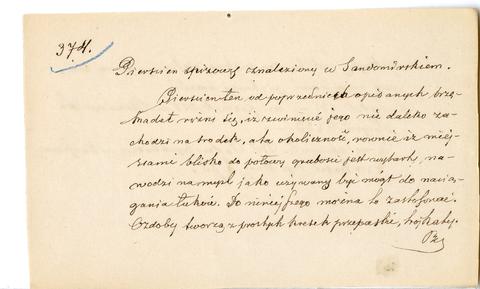 374.
Pierscien spiżowy znaleziony w Sandomirskiem.
Pierscien ten od poprzednich opisanych brzę-
kadeł różni się, iż zwinięcie jego nie daleko za-
chodzi na środek, a ta okoliczność, równie iż miej-
scami blisko do połowy grubości jest wytarty, na-
wodzi na myśl jako używany być mógł do nacią-
gania łuków. Do niniejszego można to zastosować.
Ozdoby tworzą z prostych kresek przepaski, trójkąty.